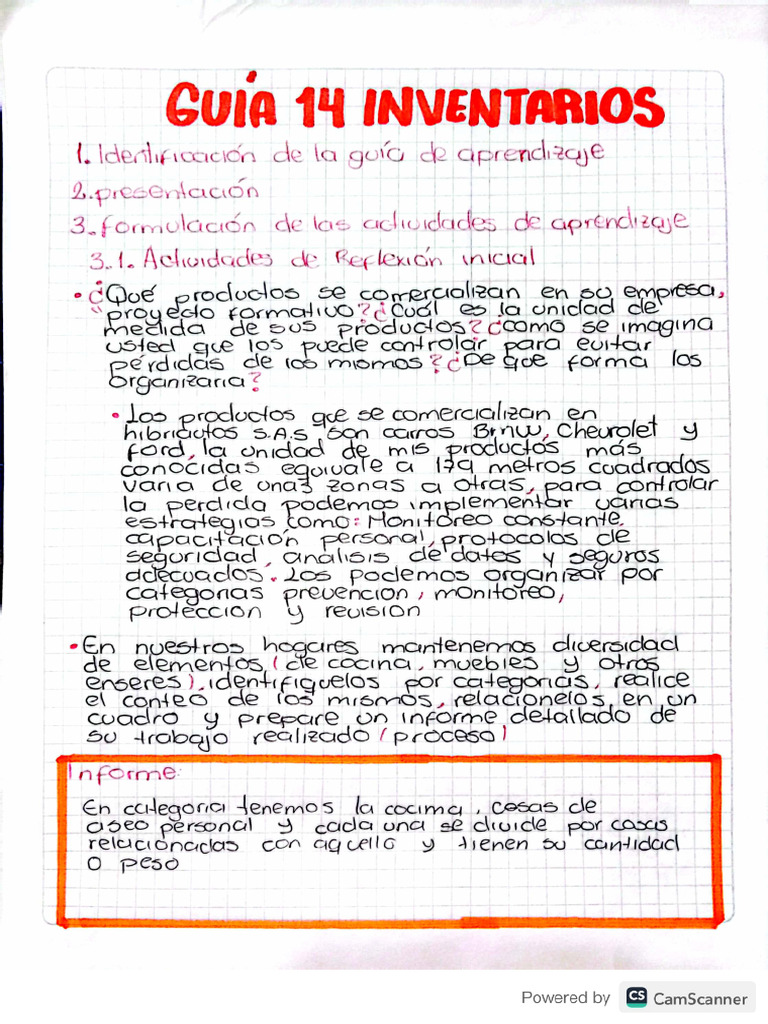 GUÍA 14 INVENTARIOS
1. Identificación de la guía de aprendizaje
2. presentación
3. formulación de las actividades de aprendizaje
3.1. Actividades de Reflexión inicial
• ¿Qué productos se comercializan en su empresa,
"proyecto formativo? ¿Cuál es la unidad de
medida de sus productos? ¿como se imagina
usted que los puede controlar para evitar
pérdidas de los mismos? ¿De que forma los
organizaria?
• Los productos que se comercializan en
hibriautos S.A.S son carros Bmw, Chevrolet y
ford, la unidad de mis productos más
conocidas equivale a 179 metros cuadrados
varia de unas zonas a otras, para controlar
la perdida podemos implementar varias
estrategias como: Monitoreo constante,
capacitación personal, protocolos de
seguridad, analisis de datos y seguros
adecuados. Los podemos organizar por
categorias prevencion, monitoreo,
proteccion y revision
• En nuestros hogares mantenemos diversidad
de elementos, (de cocina, muebles y otros
enseres), identifiquelos por categorias, realice
el conteo de los mismos, relaciónelos, en un
cuadro y prepare un informe detallado de
su trabajo realizado (proceso)
Informe:
En categoria tenemos la cocima, cosas de
aseo personal y cada una se divide por cosas
relacionadas con aquello y tienen su cantidad
o peso
Powered by CS CamScanner